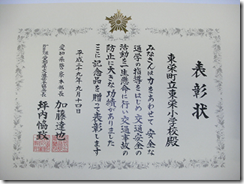 表彰状
東栄町立東栄小学校殿
みなさんは力をあわせて安全な
通学の指導をはじめ交通安全の
活動を一生懸命に行い交通事故の
防止に大きな功績がありました
ここに記念品を贈って表彰します
平成二十九年九月十四日
愛知県警察本部長 加藤達也
坪内恊致